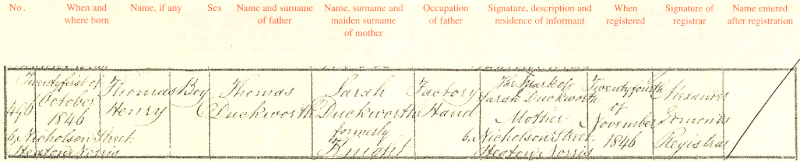 No. When and where born Name, if any Sex Name and surname of father Name, surname and maiden surname of mother Occupation of father Signature, description and residence of informant When registered Signature of registrar Name entered after registration
496
Twenty first of
October
1846
6 Nicholson Street
Heaton Norris
Thomas
Henry
Boy
Thomas
Duckworth
Sarah
Duckworth
formerly
Knight
Factory
Hand
The Mark of
Sarah Duckworth
Mother
6 Nicholson Street
Heaton Norris
Twenty fourth
of
November
1846
Edmonds
Registrar